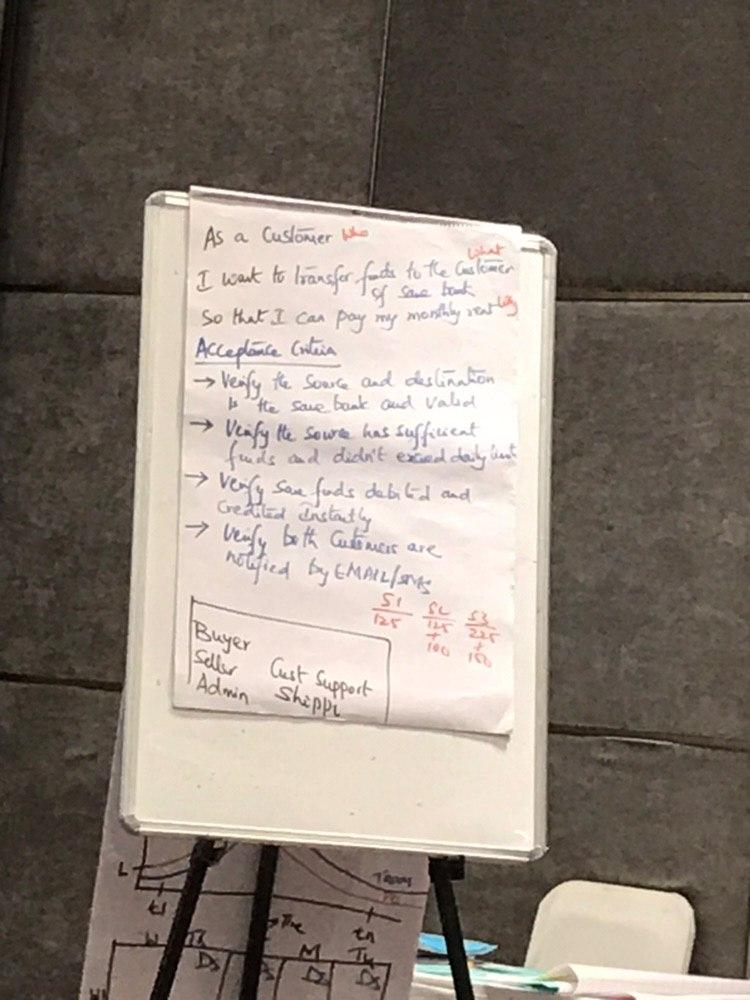 As a Customer Who
What
I want to transfer funds to the Customer
of same bank
So that I can pay my monthly rent Why
Acceptance Criteria
→ Verify the source and destination
is the same bank and valid
→ Verify the source has sufficient
funds and didn't exceed daily limit
→ Verify same funds debited and
credited instantly
→ Verify both Customers are
notified by EMAIL/SMS
S1 S2 S3
125 125 225
+ +
100 150
Buyer
Seller Cust Support
Admin Shippi
L
t1 tn
M Tu
Ds Ds Ds